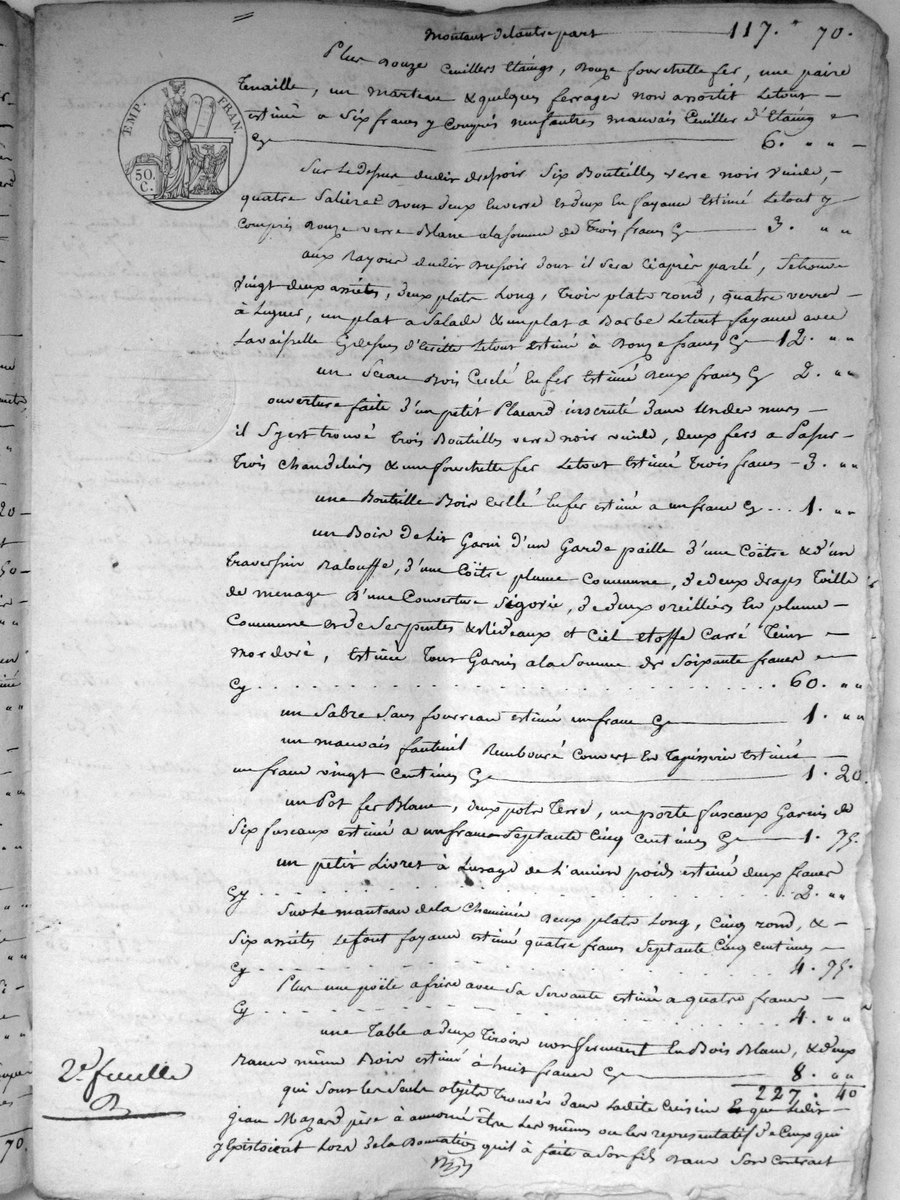 Montant de lautre part 117." 70.
Plus Douze Cuillers Etaings, Douze fourchette fer, une paire
Tenaille, un marteau & quelques ferrages non assortit Letout
estimé a Six francs y Compris neuf autres mauvais Cuiller d'Etaing
Cy 6. " "
EMP. FRAN.
50. C.
Sur Ledessus dudit dressoir Six Bouteilles verre noir vuide,
quatre Salières Dont deux En verre Et deux En fayance Estimé Letout y
Compris Douze verre Blanc ala somme de Trois francs Cy 3. " "
aux Rayons dudit Dressoir dont il Sera Ciaprès parlé, Setrouve
vingt deux assietes, deux plats Long, Trois plats rond, quatre verres
à Liqueur, un plat a Salade & un plat a Barbe Letout fayance avec
Lavaisselle Cidessus Letout Estimé à Douze francs Cy 12. " "
un Sceau Bois Cerclé En fer Estimé Deux francs Cy 2. " "
ouverture faite d'un petit Placard incruté dans Un des murs
il S'y est trouvé trois Bouteilles verre noir vuide, deux fers a Passer
Trois Chandeliers & une fourchette fer Letout Estimé Trois francs 3. " "
une Bouteille Bois Cerclé En fer estimé a un franc Cy ... 1. " "
un Bois de Lit Garni d'un Garde paille d'une Coëtre & d'un
traversin Balouffe, d'une Coëtre plume Commune, de deux draps Toille
de menage D'une Couverture de deux oreilliers En plume
Commune et de Serpentes & Rideaux et Ciel etoffe Carré Teint
mordoré, Estimé Tout Garnis ala Somme de Soixante francs
Cy 60. " "
un Sabre Sans fourreau estimé un franc Cy 1. " "
un mauvais fauteuil Rembouré Couvert En Tapisserie Estimé
un franc vingt Centimes Cy 1. 20.
un Pot fer Blanc, deux pots Terre, un porte fuseaux Garnis de
Six fuseaux estimé a un franc Septante Cinq Centimes Cy 1. 75.
un petit Livret à Lusage de L'ancien poids estimé deux francs
Cy 2. " "
Sur Le manteau de la Cheminée Deux plats Long, Cinq rond, &
Six assietes Letout fayance estimé quatre francs Septante Cinq Centimes
Cy 4. 75.
Plus une poële a frire avec Sa Servante estimé a quatre francs
Cy 4. " "
une Table a deux Tiroirs non fermant En Bois Blanc, & deux
Bancs même Bois estimé à huit francs Cy 8. " "
227. 40
2e. feuille
qui Sont les Seuls objets Trouvés dans Ladite Cuisine & que Ledit
Jean Mazard père à annoncé être Les mêmes ou les representatif de Ceux qui
y Existoient Lors de la Donation quil à faite a Son fils Dans Son Contract